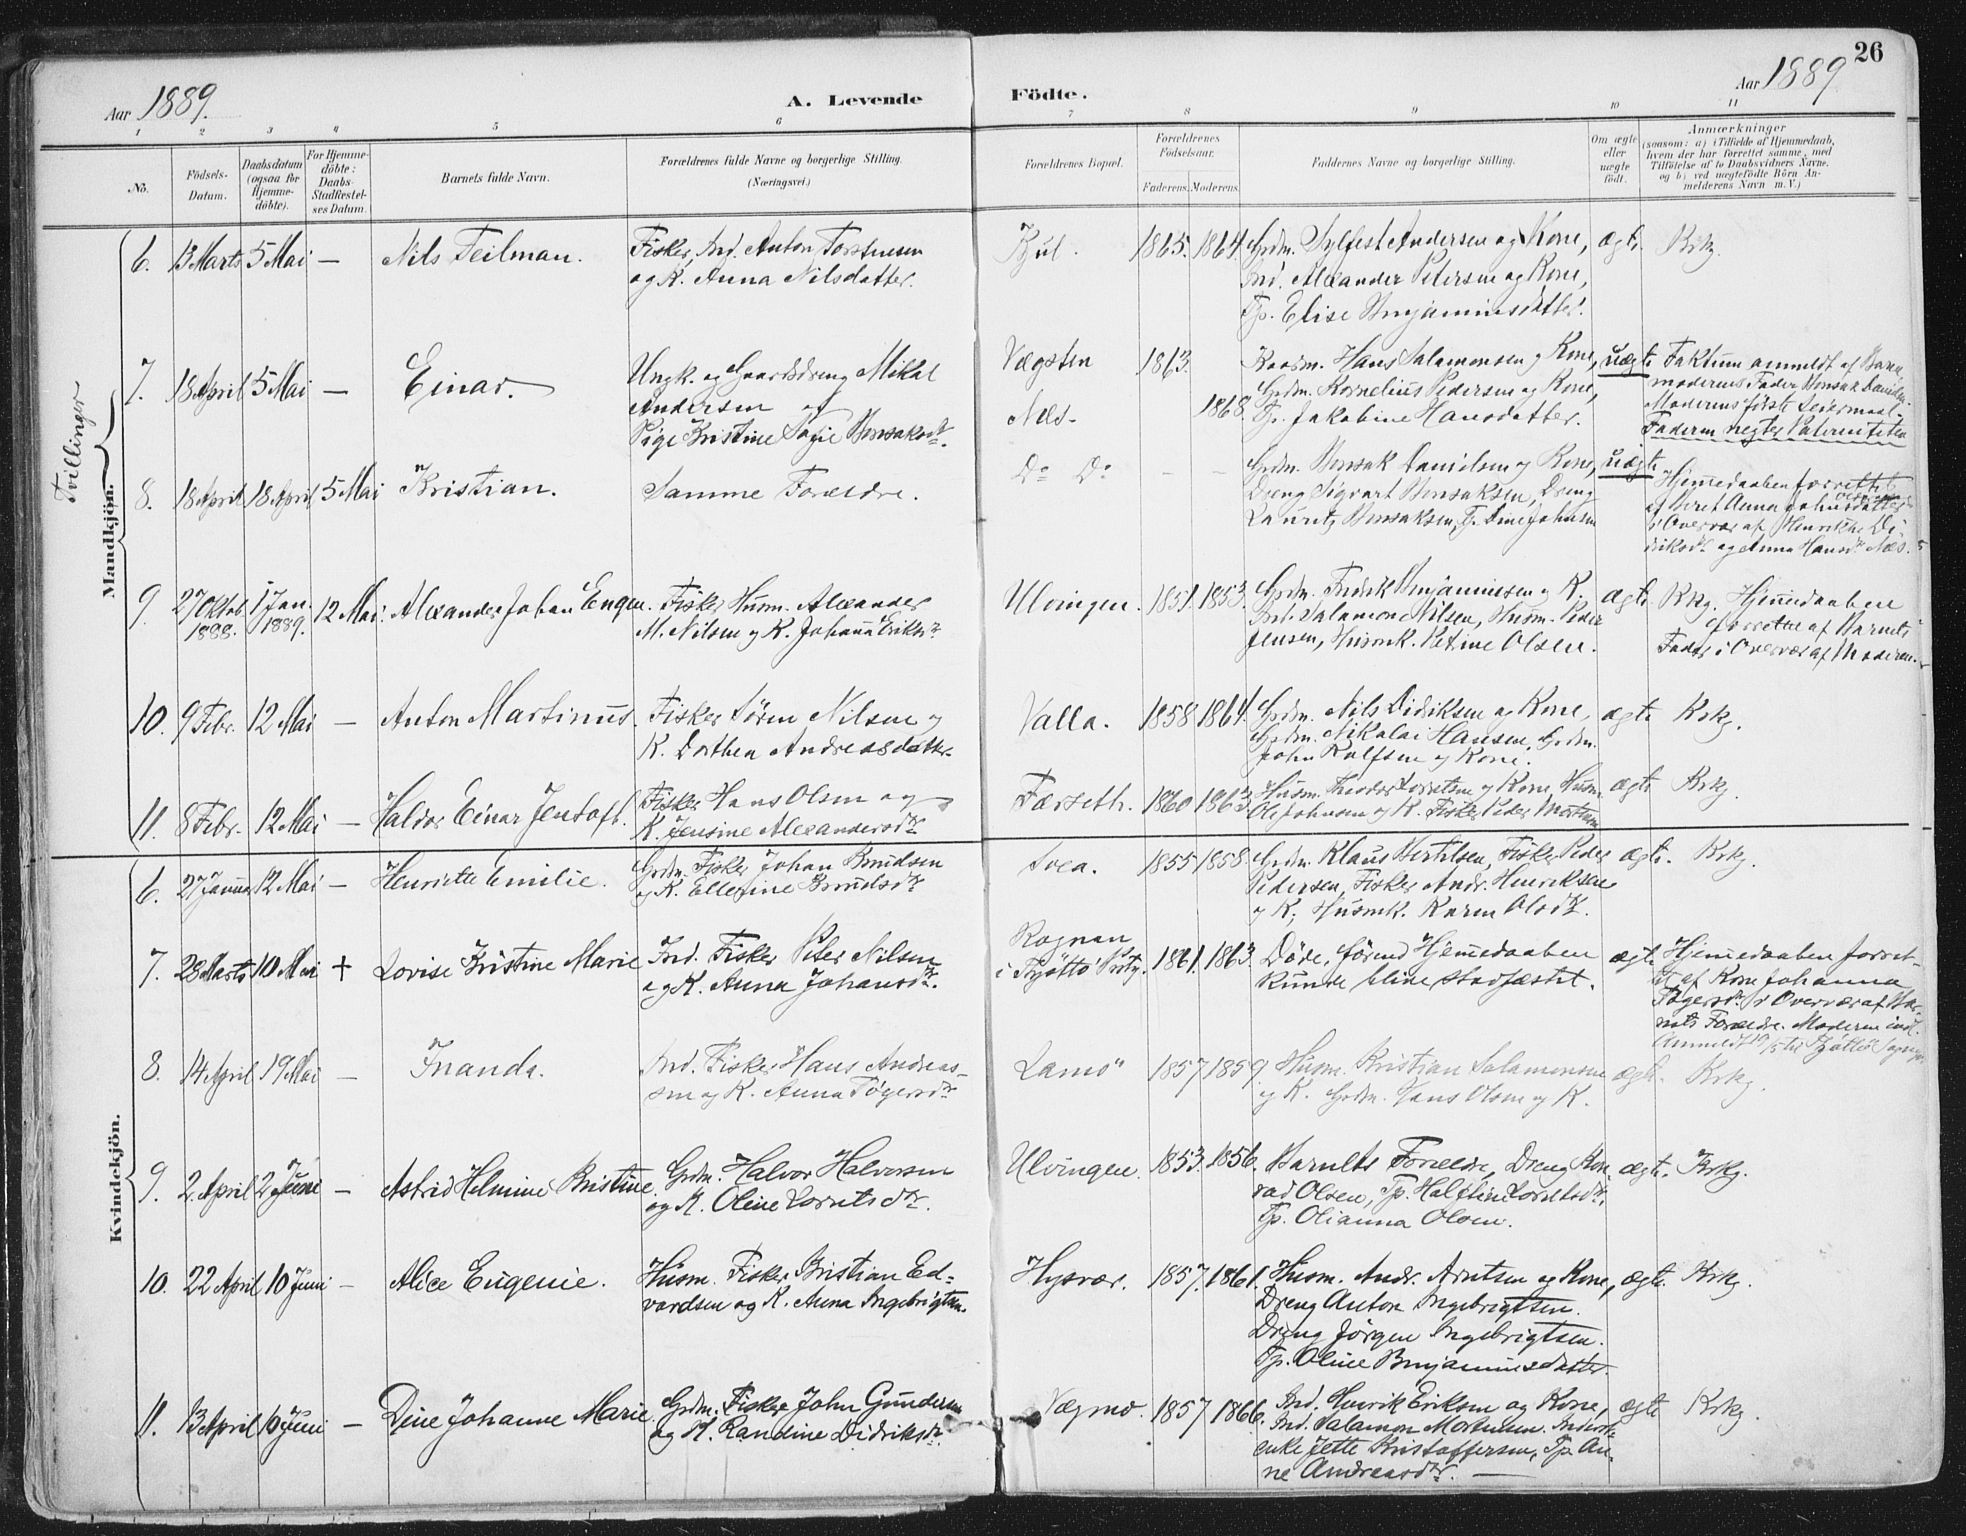 26
Aar 1889.
A. Levende Födte.
Aar 1889
1 2 3 4 5 6 7 8 9 10 11
No.
Födsels-Datum.
Daabsdatum (ogsaa for Hjemme-döbte).
For Hjemme-döbte: Daabs-Stadfæstel-ses Datum.
Barnets fulde Navn.
Forældrenes fulde Navne og borgerlige Stilling.
(Næringsvei.)
Forældrenes Bopæl.
Forældrenes Födselsaar.
Faderens. Moderens.
Faddernes Navne og borgerlige Stilling.
Om ægte eller uægte födt.
Anmærkninger
(saasom: a) i Tilfælde af Hjemmedaab,
hvem der har forrettet samme, med
Tilföielse af to Daabsvidners Navne.
og b) ved uægtefödte Börn An-
melderens Navn m.V.)
Mandkjön.
Tvillinger
6. 13 Marts 5 Mai — Nils Teilman. Fisker, Ind. Anton Torstensen
og K. Anna Nilsdatter.
1865. 1864. Grdm. Sylfest Andersen og Kone,
Ind. Alexander Petersen og Kone,
Tp. Elise Benjaminsdatter.
ægte. Krkg.
7. 18 April 5 Mai — Einar. Ungk. og Gaardsdreng Mikal
Andersen og
Pige Kristine Sofie Bonsaksdr.
Vægsten 1863.
Næs. 1868.
Hans Salamonsen og Kone,
Grdm. Kornelius Pedersen og Kone,
Tp. Jakobine Hansdatter.
uægte Faktum anmeldt af Barne
moderens Fader Bonsak Danielsen.
Moderens förste Leiermaal.
Faderen negter Paterniteten
8. 18 April 18 April 5 Mai Kristian. Samme Forældre.
Do Do — —
Grdm. Bonsak Danielsen og Kone,
Dreng Sigvart Bonsaksen, Dreng
Laurits Bonsaksen, Tp. Dine Johnsen
uægte Hjemmedaaben forrettet
af Beret Anna Johnsdatter
i Overvær af Henrikke Di-
driksdr. og Anna Hansdr. Næs.
9. 27 Oktob. 1888. 1 Jan. 1889. 12 Mai. Alexander Johan Engen. Fisker Husm. Alexander
M. Nilsen og K. Johanna Eriksdr.
Ulvingen. 1851. 1853. Grdm. Fredrik Benjaminsen og K.
Ind. Salamon Nilsen, Husm. Peder
Jensen, Husmk. Petrine Olsen.
ægte. Krkg. Hjemmedaaben
forrettet af Barnets
Fader i Overvær af Moderen.
10. 9 Febr. 12 Mai — Anton Martinus. Fisker Sören Nilsen og
K. Dorthea Andreasdatter.
Valla. 1858 1864. Grdm. Nils Didriksen og Kone,
Grdm. Nikolai Hansen, Grdm.
John Rolfsen og Kone.
ægte Krkg.
11. 8 Febr. 12 Mai — Haldor Einar Jentoft. Fisker Hans Olsen og
K. Jensine Alexandersdr.
Færseth. 1860 1863. Husm. Theodor Lorntsen og Kone, Husm.
Ole Johnsen og K. Fisker Peder Mortensen
ægte Krkg.
Kvindekjön.
6. 27 Januar 12 Mai — Henriette Emilie. Grdm. Fisker Johan Knudsen
og K. Ellefine Knudsdr.
Svea. 1855 1858. Grdm. Klaus Bertilsen, Fisker Peder
Pedersen, Fisker Andr. Henriksen
og K; Husmk. Karen Olsdr.
ægte. Krkg.
7. 28 Marts 10 Mai + Lovise Kristine Marie Ind. Fisker Peter Nilsen
og K. Anna Johansdr.
Rognan
i Tjøttø 1861. 1863. Döde, förend Hjemmedaaben
kunde blive stadfæstet.
ægte. Hjemmedaaben forret-
tet af Kone Johanna
Tögersdr. i Overvær af Bar-
nets Forældre. Moderen indl.
Anmeldt 19/5 til Tjøttø Sogne
8. 14 April 19 Mai — Inanda. Ind. Fisker Hans Andreas-
sen og K. Anna Tögersdr.
Lamö 1857 1859. Husm. Kristian Salamonsen
og K. Grdm. Hans Olsen og K.
ægte. Krkg.
9. 2 April 2 Juni — Astrid Helmine Kristine Grdm. Halvor Halvorsen
og K. Oline Lorntsdr.
Ulvingen. 1853. 1856. Barnets Forældre, Dreng Kon-
rad Olsen, Tp. Halftine Lorntsdr.
Tp. Olianna Olsen.
ægte. Krkg.
10. 22 April 10 Juni — Alice Eugenie. Husm. Fisker Kristian Ed-
vardsen og K. Anna Ingebrigtsn.
Hysvær. 1857. 1861. Husm. Andr. Arntsen og Kone,
Dreng Anton Ingebrigtsen.
Dreng Jörgen Ingebrigtsen.
Tp. Oline Benjaminsdatter.
ægte. Krkg.
11. 13 April 10 Juni — Dine Johanne Marie Grdm. Fisker John Gundersen
og K. Randine Didriksdr.
Vægmo. 1857 1866. Ind. Henrik Eriksen og Kone,
Ind. Salamon Mortensen. Inderst-
enke Jette Kristoffersen, Tp. An-
ne Andreasdr. —
ægte Krkg.